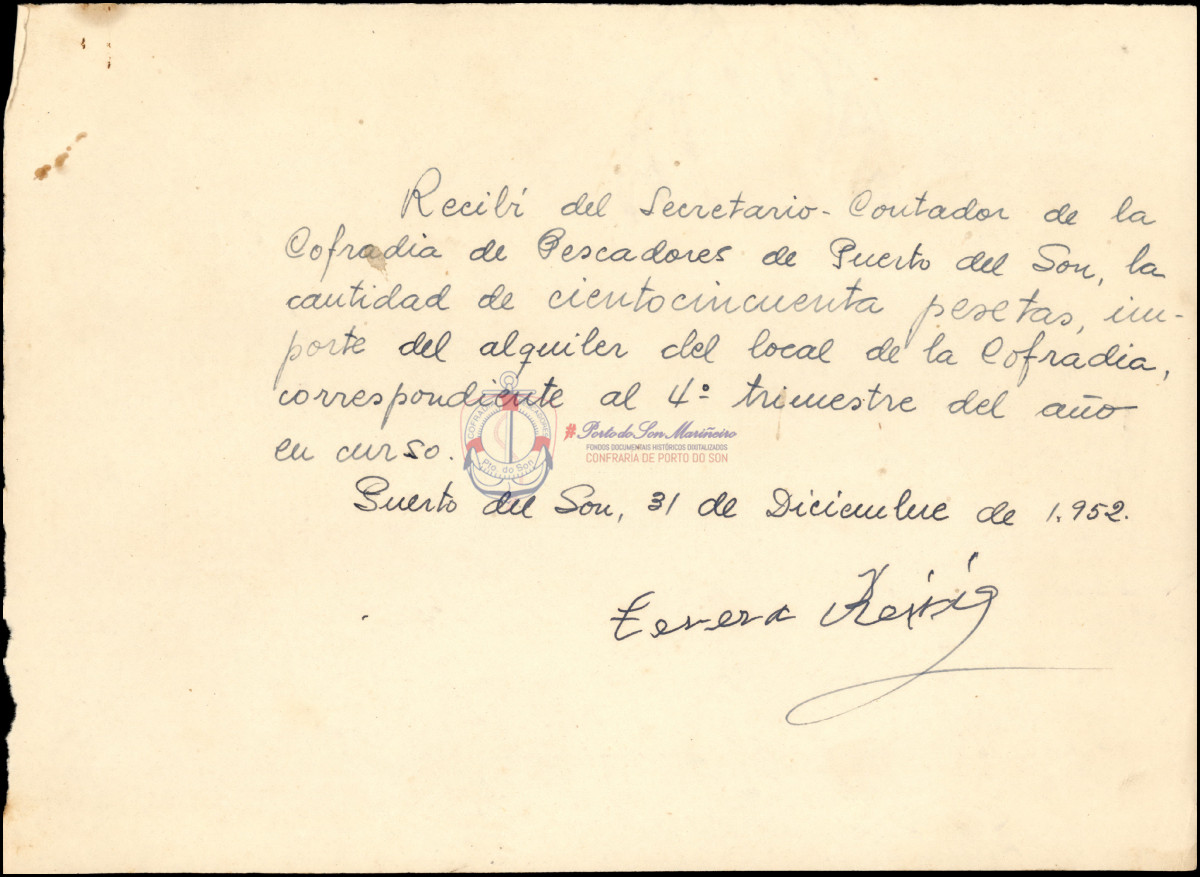 Recibí del Secretario-Contador de la
Cofradia de Pescadores de Puerto del Son, la
cantidad de cientocincuenta pesetas, im-
porte del alquiler del local de la Cofradia,
correspondiente al 4º trimestre del año
en curso.
#Porto do Son Mariñeiro
FONDOS DOCUMENTAIS HISTÓRICOS DIXITALIZADOS
CONFRARÍA DE PORTO DO SON
Pto. do Son
Puerto del Son, 31 de Diciembre de 1.952.